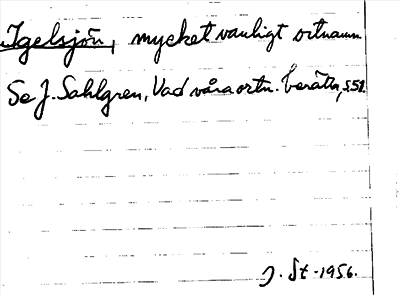 Igelsjön, mycket vanligt ortnamn
Se J. Sahlgren, Vad våra ortn. berätta, s.51.
J. St -1956.